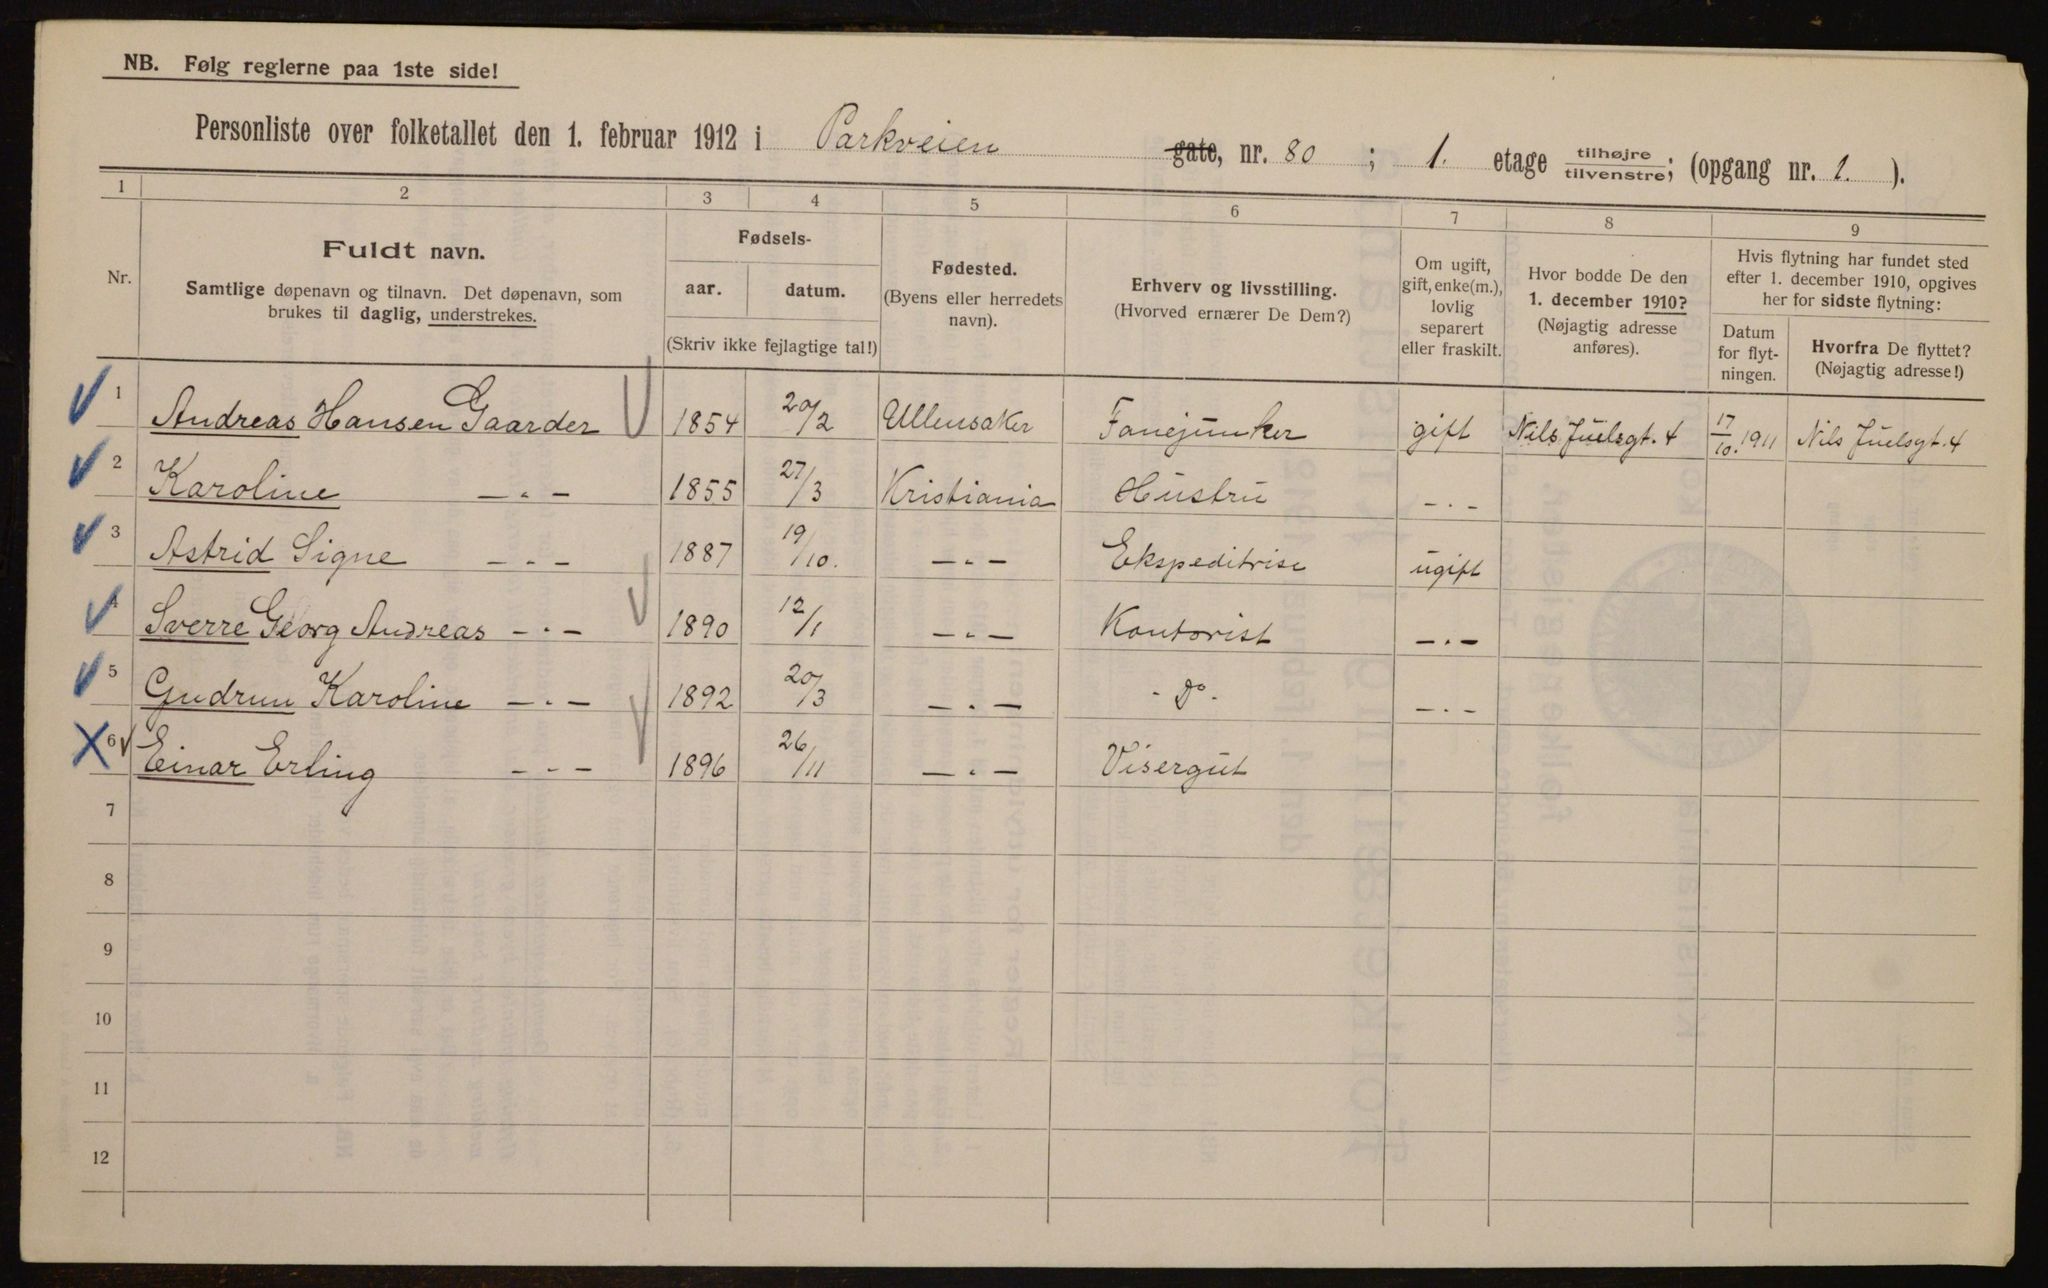 NB. Følg reglerne paa 1ste side!
Personliste over folketallet den 1. februar 1912 i Parkveien gate, nr. 80 ; 1. etage tilhøjre/tilvenstre; (opgang nr. 1. ).
1 2 3 4 5 6 7 8 9
Nr.
Fuldt navn.
Samtlige døpenavn og tilnavn. Det døpenavn, som
brukes til daglig, understrekes.
Fødsels-
aar. datum.
(Skriv ikke fejlagtige tal!)
Fødested.
(Byens eller herredets
navn).
Erhverv og livsstilling.
(Hvorved ernærer De Dem?)
Om ugift,
gift, enke(m.),
lovlig
separert
eller fraskilt.
Hvor bodde De den
1. december 1910?
(Nøjagtig adresse
anføres).
Hvis flytning har fundet sted
efter 1. december 1910, opgives
her for sidste flytning:
Datum
for flyt-
ningen.
Hvorfra De flyttet?
(Nøjagtig adresse!)
1 Andreas Hansen Gaarder 1854 20/2 Ullensaker Fanejunker gift Nils Juelsgt. 4 17/10. 1911 Nils Juelsgt. 4
2 Karoline —"— 1855 27/3 Kristiania Hustru —"—
3 Astrid Signe —"— 1887 19/10. —"— Ekspeditrise ugift
4 Sverre Georg Andreas —"— 1890 12/1 —"— Kontorist —"—
5 Gudrun Karoline —"— 1892 20/3 —"— - Do - —"—
6 Einar Erling —"— 1896 26/11 —"— Visergut
7
8
9
10
11
12